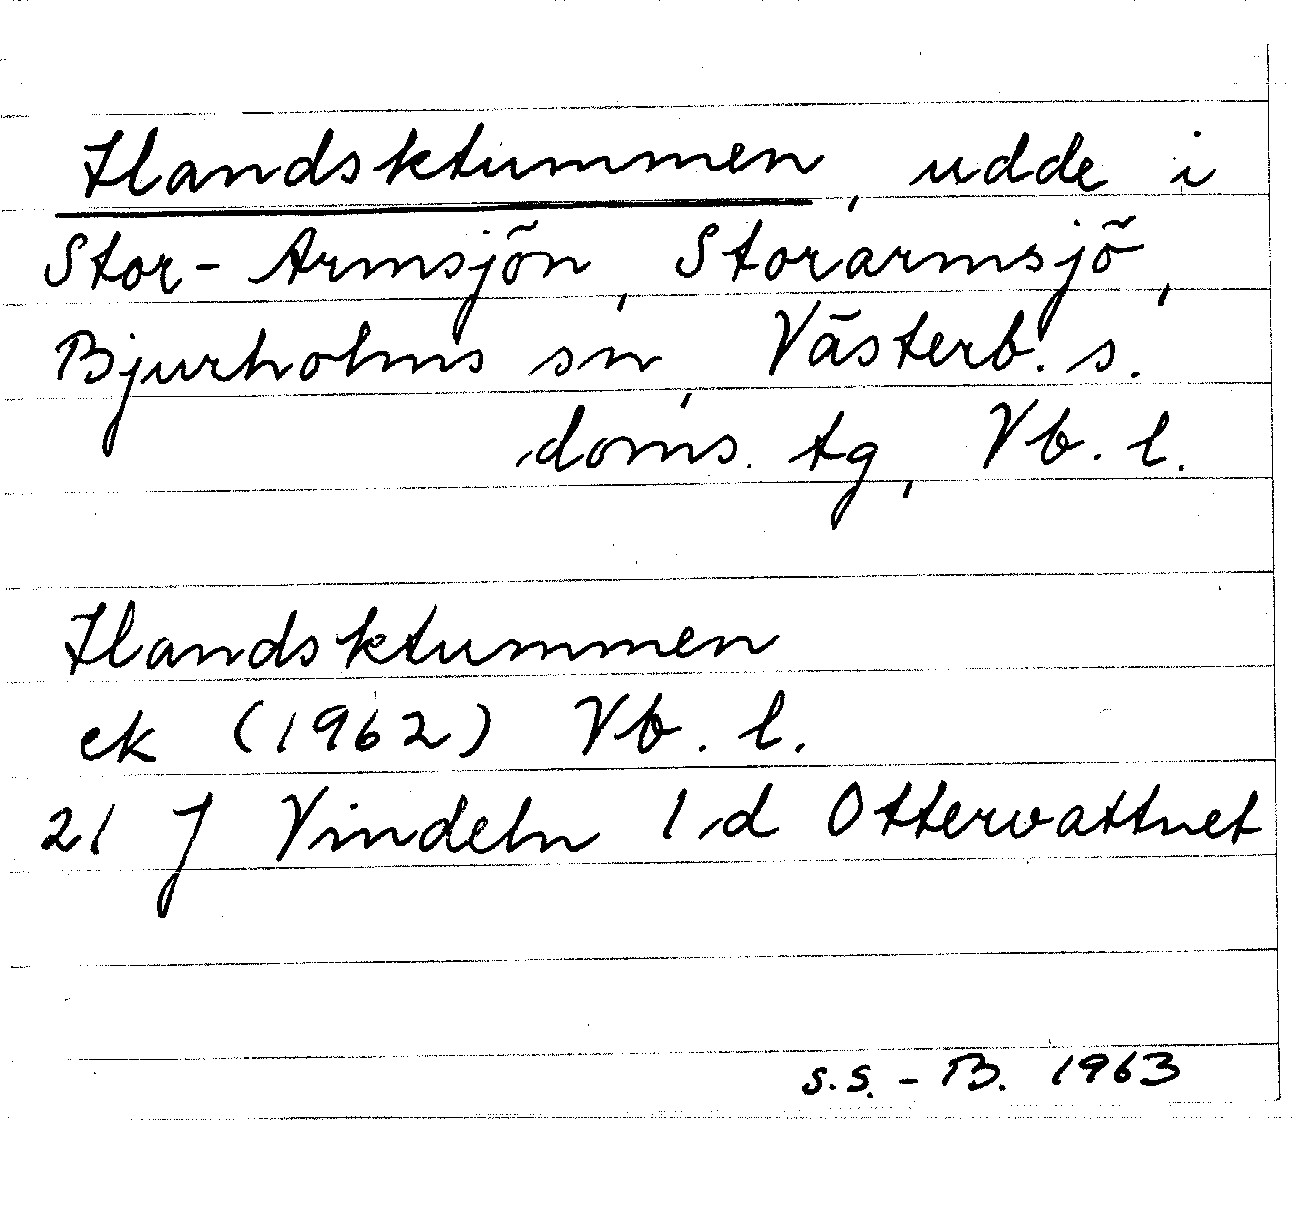 Handsktummen, udde i
Stor-Armsjön, Storarmsjö,
Bjurholms sn, Västerb. s.
doms. tg, Vb. l.
Handsktummen
ek (1962) Vb. l.
21 J Vindeln 1 d Ottervattnet
S.S. - B. 1963